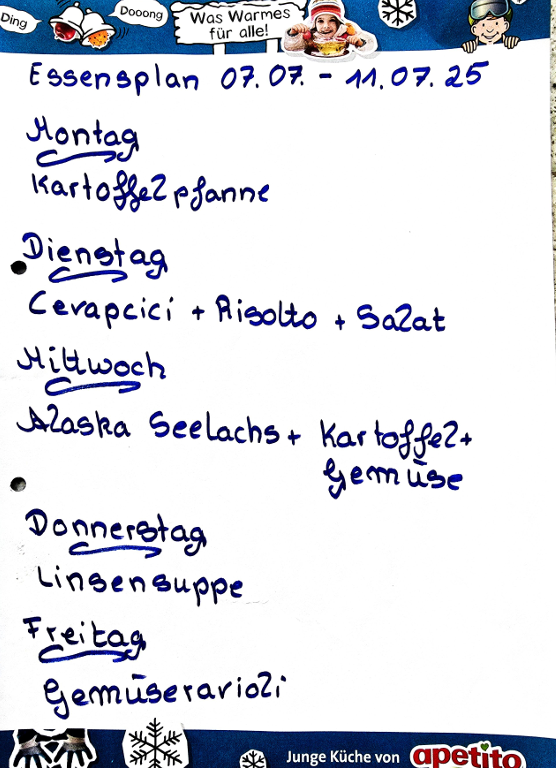 Ding
Dooong
Was Warmes
für alle!
Essensplan 07.07. - 11.07.25
Montag
Kartoffelpfanne
Dienstag
Cevapcici + Risotto + Salat
Mittwoch
Alaska Seelachs + Kartoffel +
Gemüse
Donnerstag
Linsensuppe
Freitag
Gemüseravioli
Junge Küche von apetito